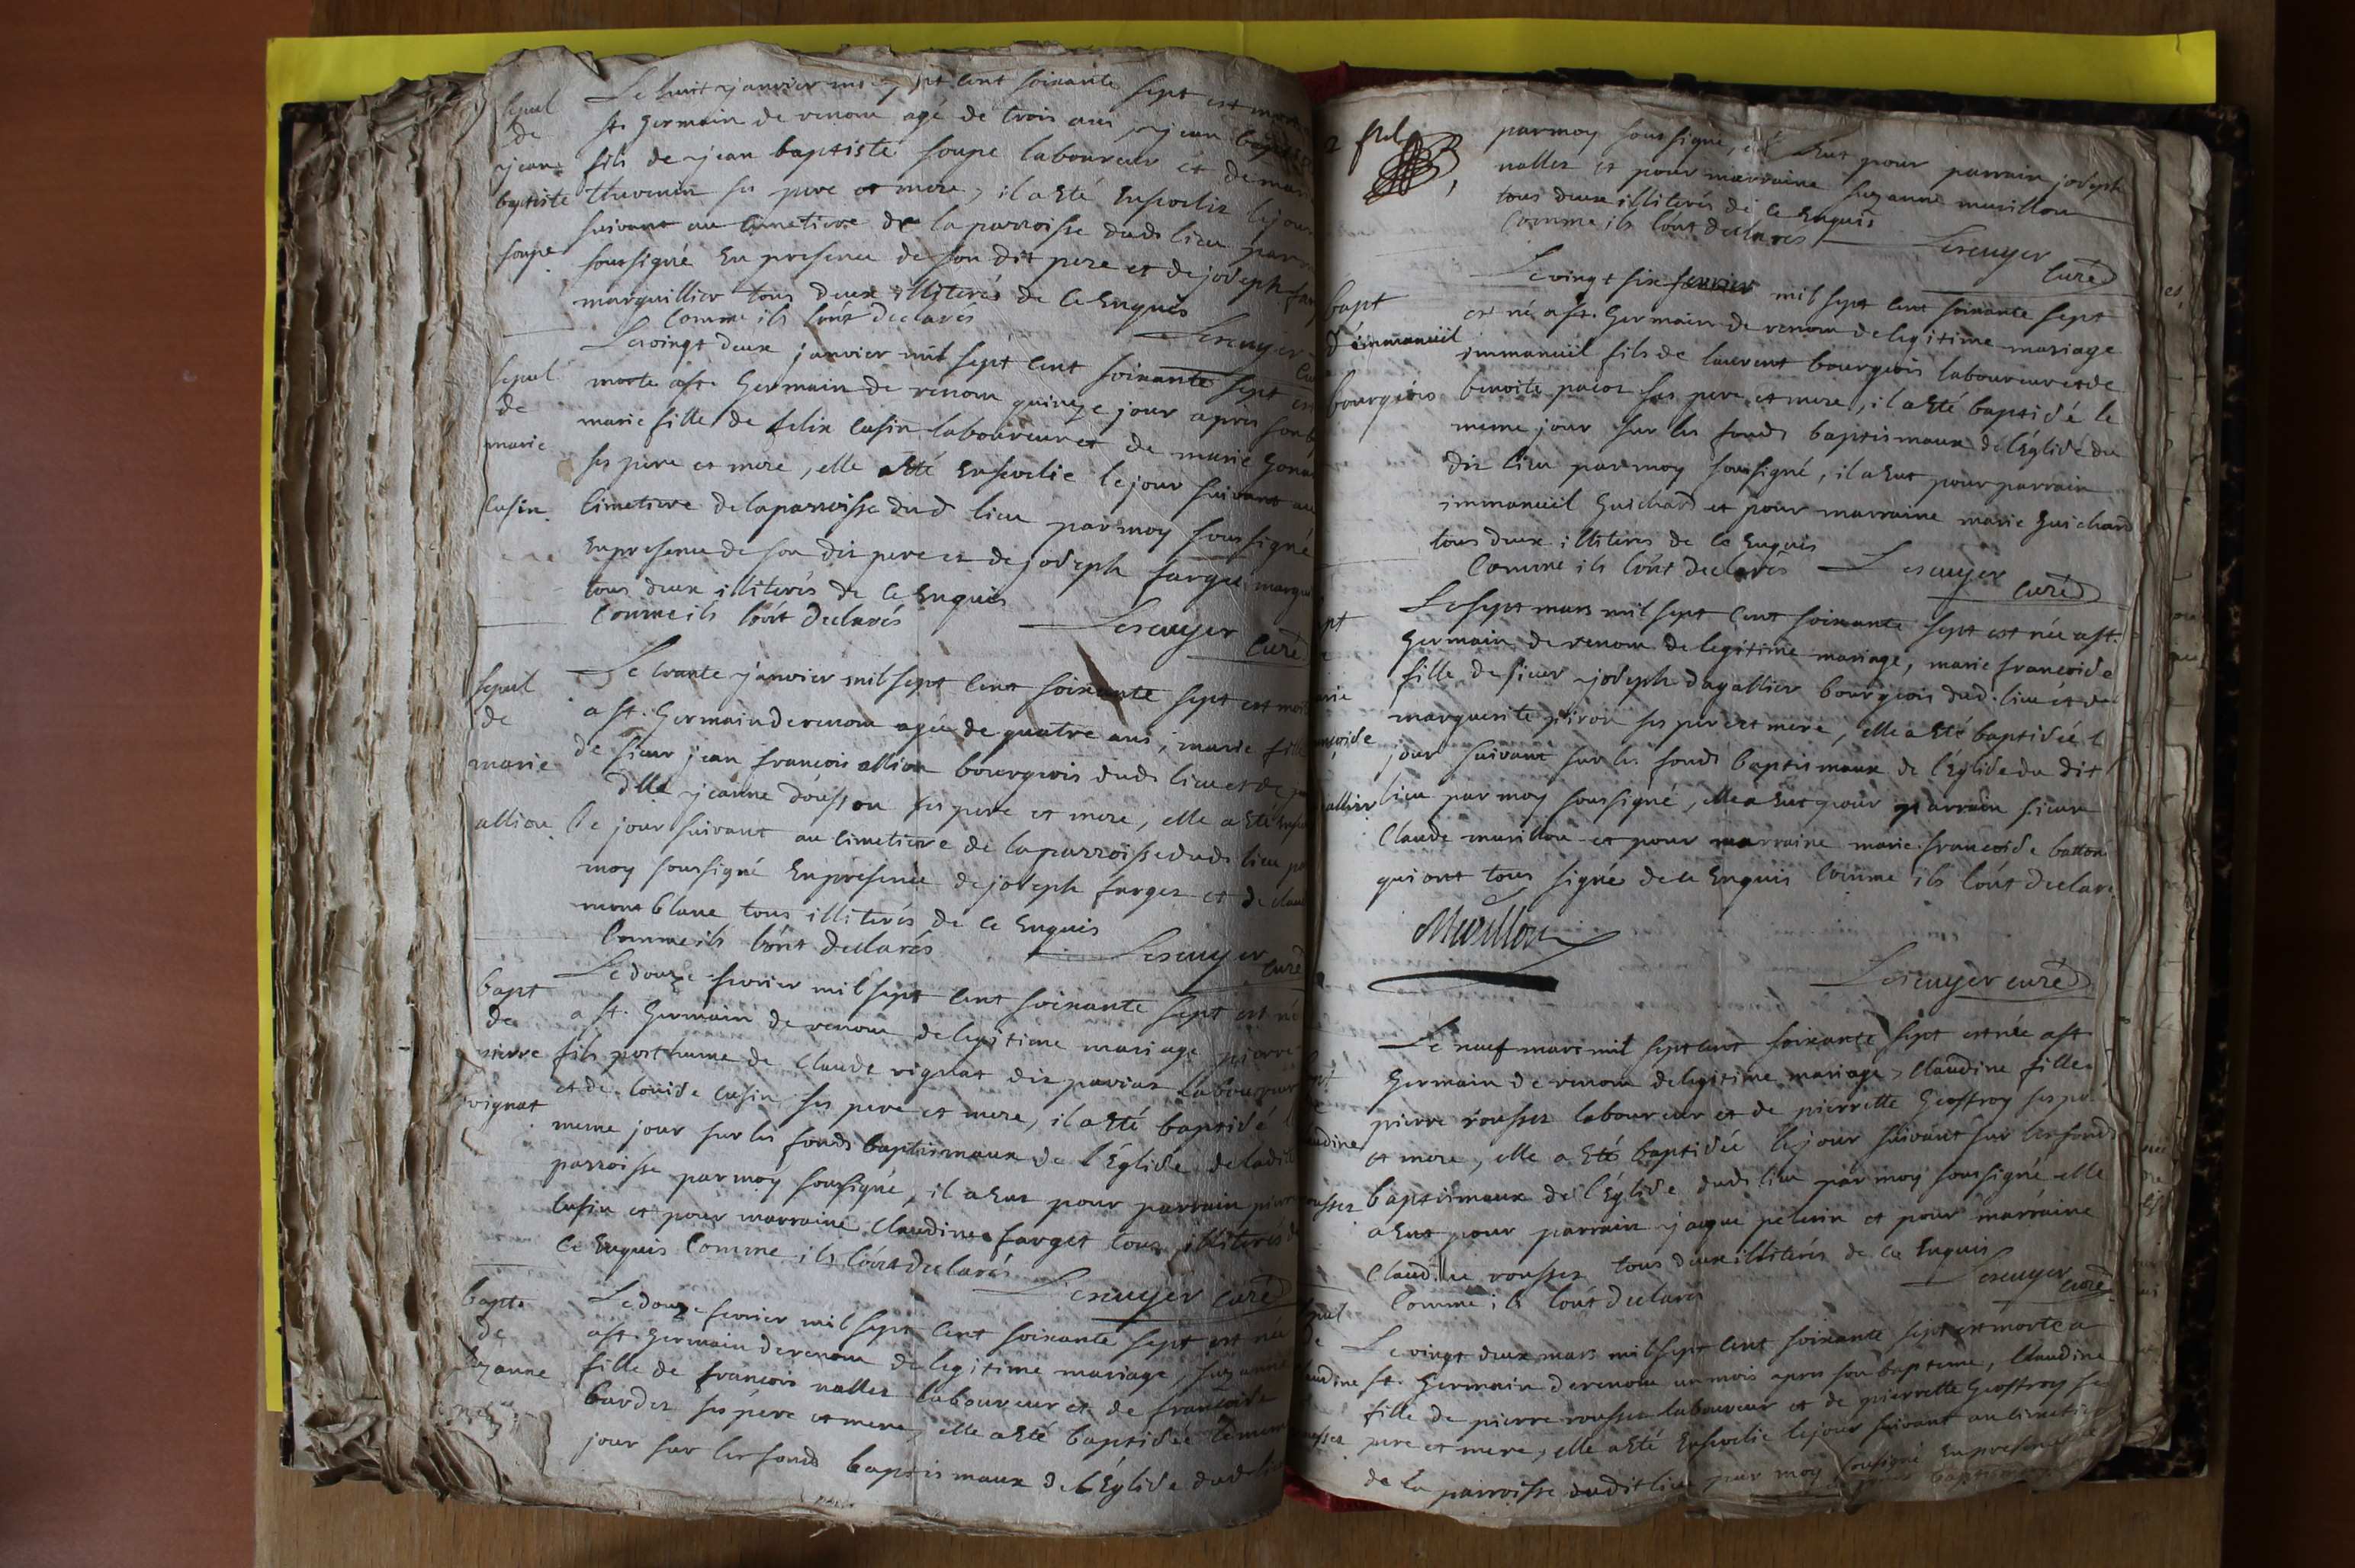 sepul
de
jean
baptiste
soupe
Le huit janvier mil sept cent soixante sept est mort
st. Germain de renom agé de trois ans jean baptiste
fils de jean baptiste soupe laboureur et de marie
thevenin ses pere et mere, il a Eté Enseveli le jour
suivant au cimetiere de la parroisse dud. lieu par
soussigné En presence de son dit pere et de joseph
marguillier tous deux illiterés de ce Enquis
Comme ils lont declarés
Lescuyer
sepul
de
marie
Cusin
Le vingt deux janvier mil sept cent soixante sept est
morte a st. Germain de renom quinze jour apres son
marie fille de felix Cusin laboureur et de marie
ses pere et mere, elle a Eté Ensevelie le jour suivant au
Cimetiere de la parroisse dud lieu par moy soussigné
En presence de son dit pere et de joseph farget
tous deux illiterés de ce Enquis
Comme ils lont declarés
Lescuyer Curé
sepul
de
marie
allion
Le trante janvier mil sept cent soixante sept est morte
a st. Germain de renom agée de quatre ans, marie fille
de sieur jean francois allion bourgeois dud. lieu et de
dlle jeanne ses pere et mere, elle a Eté
le jour suivant au cimetiere de la parroisse dud. lieu
moy soussigné En presence de joseph farget et de
montblanc tous illiterés de ce Enquis
Comme ils lont declarés
Lescuyer curé
bapt
de
pierre
vignat
Le douze fevrier mil sept cent soixante sept est né
a st. Germain de renom de legitime mariage pierre
fils posthume de Claude vignat dit laboureur
et de louise cusin ses pere et mere, il a Eté baptisé
meme jour sur les fonds baptismaux de l'Eglise de ladite
parroisse par moy soussigné, il a Eut pour parrain pierre
Cusin et pour marraine Claudine farget tous illiterés de
ce Enquis Comme ils lont declarés
Lescuyer curé
bapt.
de
suzanne
Le douze fevrier mil sept cent soixante sept est née
a st. Germain de renom de legitime mariage, suzanne
fille de francois nallet laboureur et de francoise
bardet ses pere et mere, elle a Eté baptisée le meme
jour sur les fonds baptismaux de l'Eglise dud. lieu
par moy soussigné, elle a Eut pour parrain joseph
nallet et pour marraine suzanne musillon
tous deux illiterés de ce Enquis
Comme ils lont declarés
Lescuyer
Curé
bapt
d'immanuël
bourgeois
Le vingt six fevrier mil sept cent soixante sept
est né a st. Germain de renom de legitime mariage
immanuël fils de laurent bourgeois laboureur et de
benoite ses pere et mere, il a Eté baptisé le
meme jour sur les fonds baptismaux de l'Eglise du
dit lieu par moy soussigné, il a Eut pour parrain
immanuël Guichard et pour marraine marie Guichard
tous deux illiterés de ce Enquis
Comme ils lont declarés
Lescuyer
Curé
Le sept mars mil sept cent soixante sept est née a st.
Germain de renom de legitime mariage, marie francoise
fille de sieur joseph dagallier bourgeois dud. lieu et de
marguerite piron ses pere et mere, elle a Eté baptisée l
jour suivant sur les fonds baptismaux de l'Eglise du dit
lieu par moy soussigné, elle a Eut pour parrain sieur
Claude musillon et pour marraine marie francoise
qui ont tous signé de ce Enquis Comme ils lont declaré
Musillon
Lescuyer curé
Le neuf mars mil sept cent soixante sept est née a st
Germain de renom de legitime mariage, Claudine fille
pierre rousset laboureur et de pierrette Geoffroy ses pe
et mere, elle a Eté baptisée le jour suivant sur les fonds
baptismaux de l'Eglise dud. lieu par moy soussigné elle
a Eut pour parrain jacque pelerin et pour marraine
Claudine rousset tous deux illiterés de ce Enquis
Comme ils lont declaré
Lescuyer
curé
Le vingt deux mars mil sept cent soixante sept est morte a
st. Germain de renom un mois apres son bapteme, Claudine
fille de pierre rousset laboureur et de pierrette Geoffroy ses
pere et mere, elle a Eté Ensevelie le jour suivant au cimetiere
de la parroisse dudit lieu par moy soussigné En presence